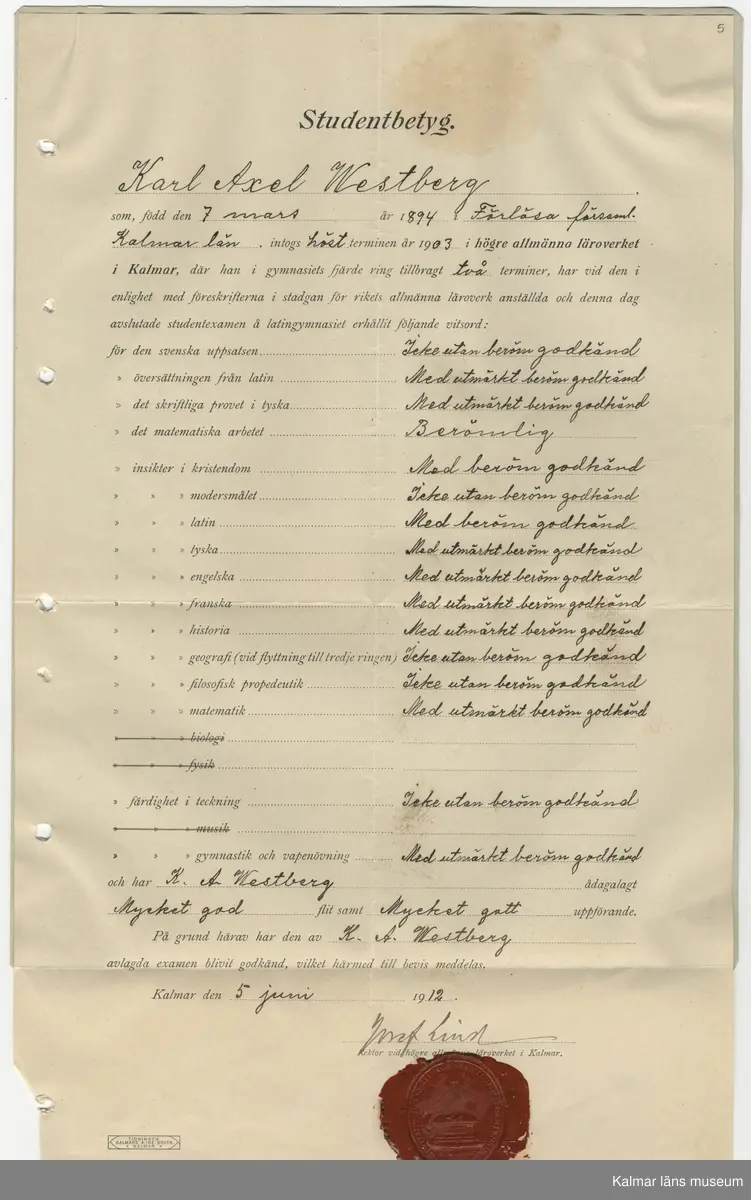 5
Studentbetyg.
Karl Axel Westberg.
som, född den 7 mars år 1894 i Förlösa församl.
Kalmar län, intogs höst terminen år 1903 i högre allmänna läroverket
i Kalmar, där han i gymnasiets fjärde ring tillbragt två terminer, har vid den i
enlighet med föreskrifterna i stadgan för rikets allmänna läroverk anställda och denna dag
avslutade studentexamen å latingymnasiet erhållit följande vitsord:
för den svenska uppsatsen Icke utan beröm godkänd
» översättningen från latin Med utmärkt beröm godkänd
» det skriftliga provet i tyska Med utmärkt beröm godkänd
» det matematiska arbetet Berömlig
» insikter i kristendom Med beröm godkänd
» » » modersmålet Icke utan beröm godkänd
» » » latin Med beröm godkänd
» » » tyska Med utmärkt beröm godkänd
» » » engelska Med utmärkt beröm godkänd
» » » franska Med utmärkt beröm godkänd
» » » historia Med utmärkt beröm godkänd
» » » geografi (vid flyttning till tredje ringen) Icke utan beröm godkänd
» » » filosofisk propedeutik Icke utan beröm godkänd
» » » matematik Med utmärkt beröm godkänd
» » » biologi
» » » fysik
» färdighet i teckning Icke utan beröm godkänd
» » » musik
» » » gymnastik och vapenövning Med utmärkt beröm godkänd
och har K. A Westberg ådagalagt
Mycket god flit samt Mycket gott uppförande.
På grund härav har den av K. A. Westberg
avlagda examen blivit godkänd, vilket härmed till bevis meddelas.
Kalmar den 5 juni 1912.
Josef Lind
Rektor vid högre allmänna läroverket i Kalmar.
TIDNINGEN
KALMARS A.-B:S BOKTR.
KALMAR
Kalmar läns museum